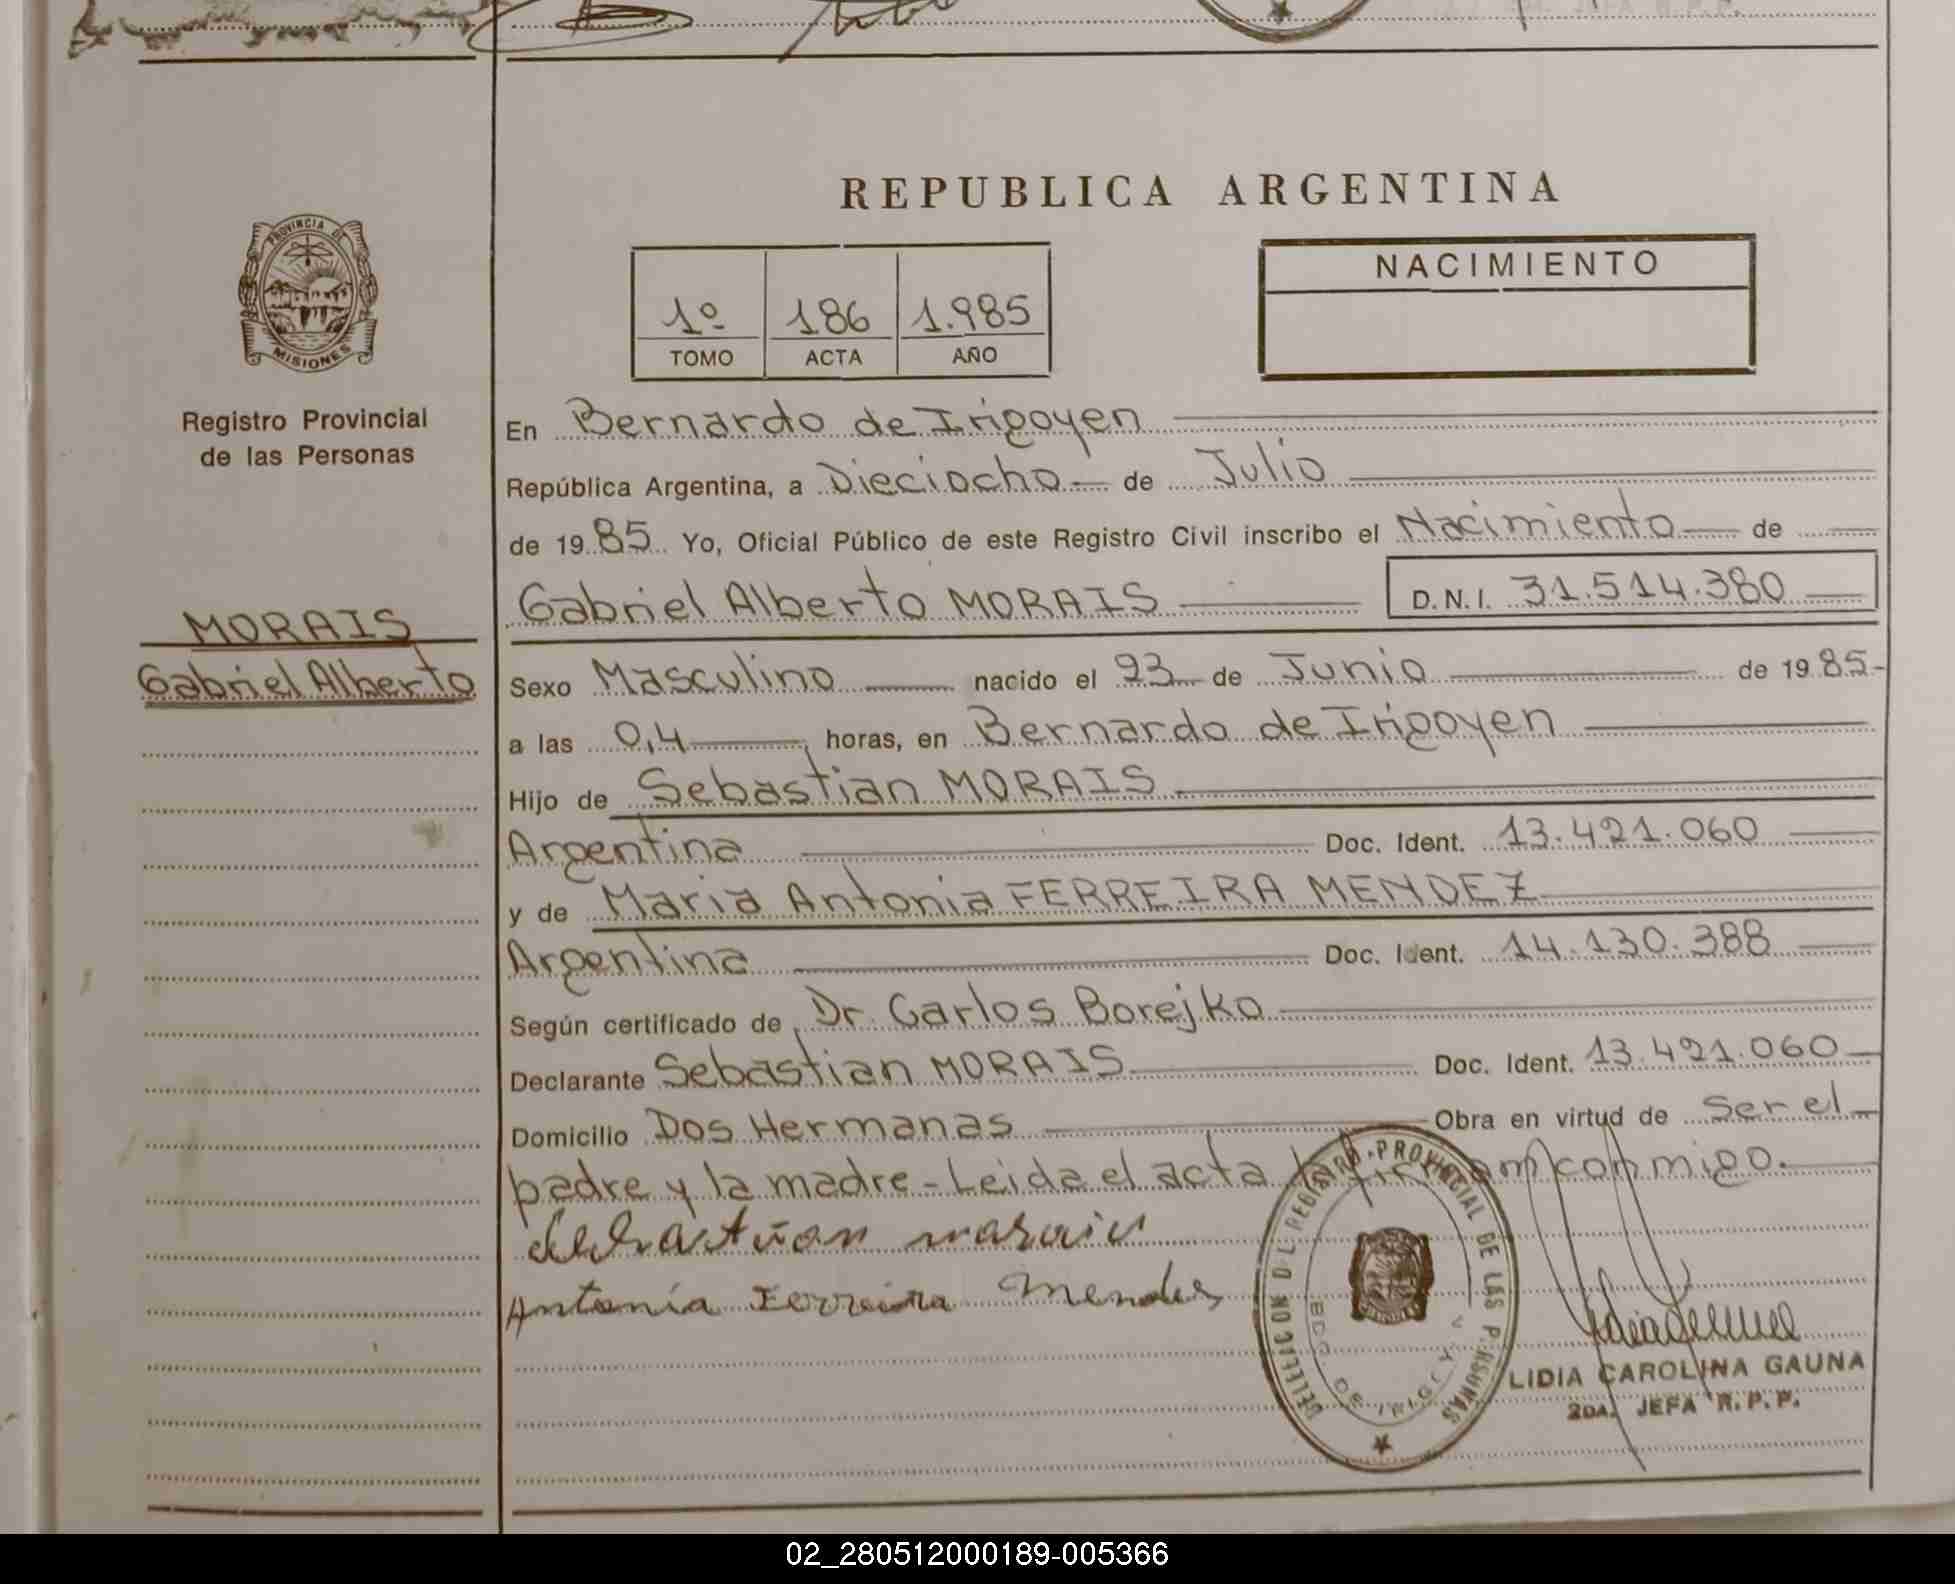 REPUBLICA ARGENTINA
PROVINCIA DE
MISIONES
Registro Provincial
de las Personas
1º 186 1.985
TOMO ACTA AÑO
NACIMIENTO
En Bernardo de Irigoyen
República Argentina, a Dieciocho de Julio
de 1985 Yo, Oficial Público de este Registro Civil inscribo el Nacimiento de
Gabriel Alberto MORAIS D.N.I. 31.514.380
MORAIS
Gabriel Alberto
Sexo Masculino nacido el 23 de Junio de 1985-
a las 0,4 horas, en Bernardo de Irigoyen
Hijo de Sebastian MORAIS
Argentina Doc. Ident. 13.421.060
y de Maria Antonia FERREIRA MENDEZ
Argentina Doc. Ident. 14.130.388
Según certificado de Dr. Carlos Borejko
Declarante Sebastian MORAIS Doc. Ident. 13.421.060
Domicilio Dos Hermanas Obra en virtud de Ser el
padre y la madre - Leida el acta conmigo.
Sebastian morais
Antonia Ferreira Mendes
REGISTRO PROVINCIAL DE LAS
LIDIA CAROLINA GAUNA
2DA. JEFA R.P.P.
02_280512000189-005366